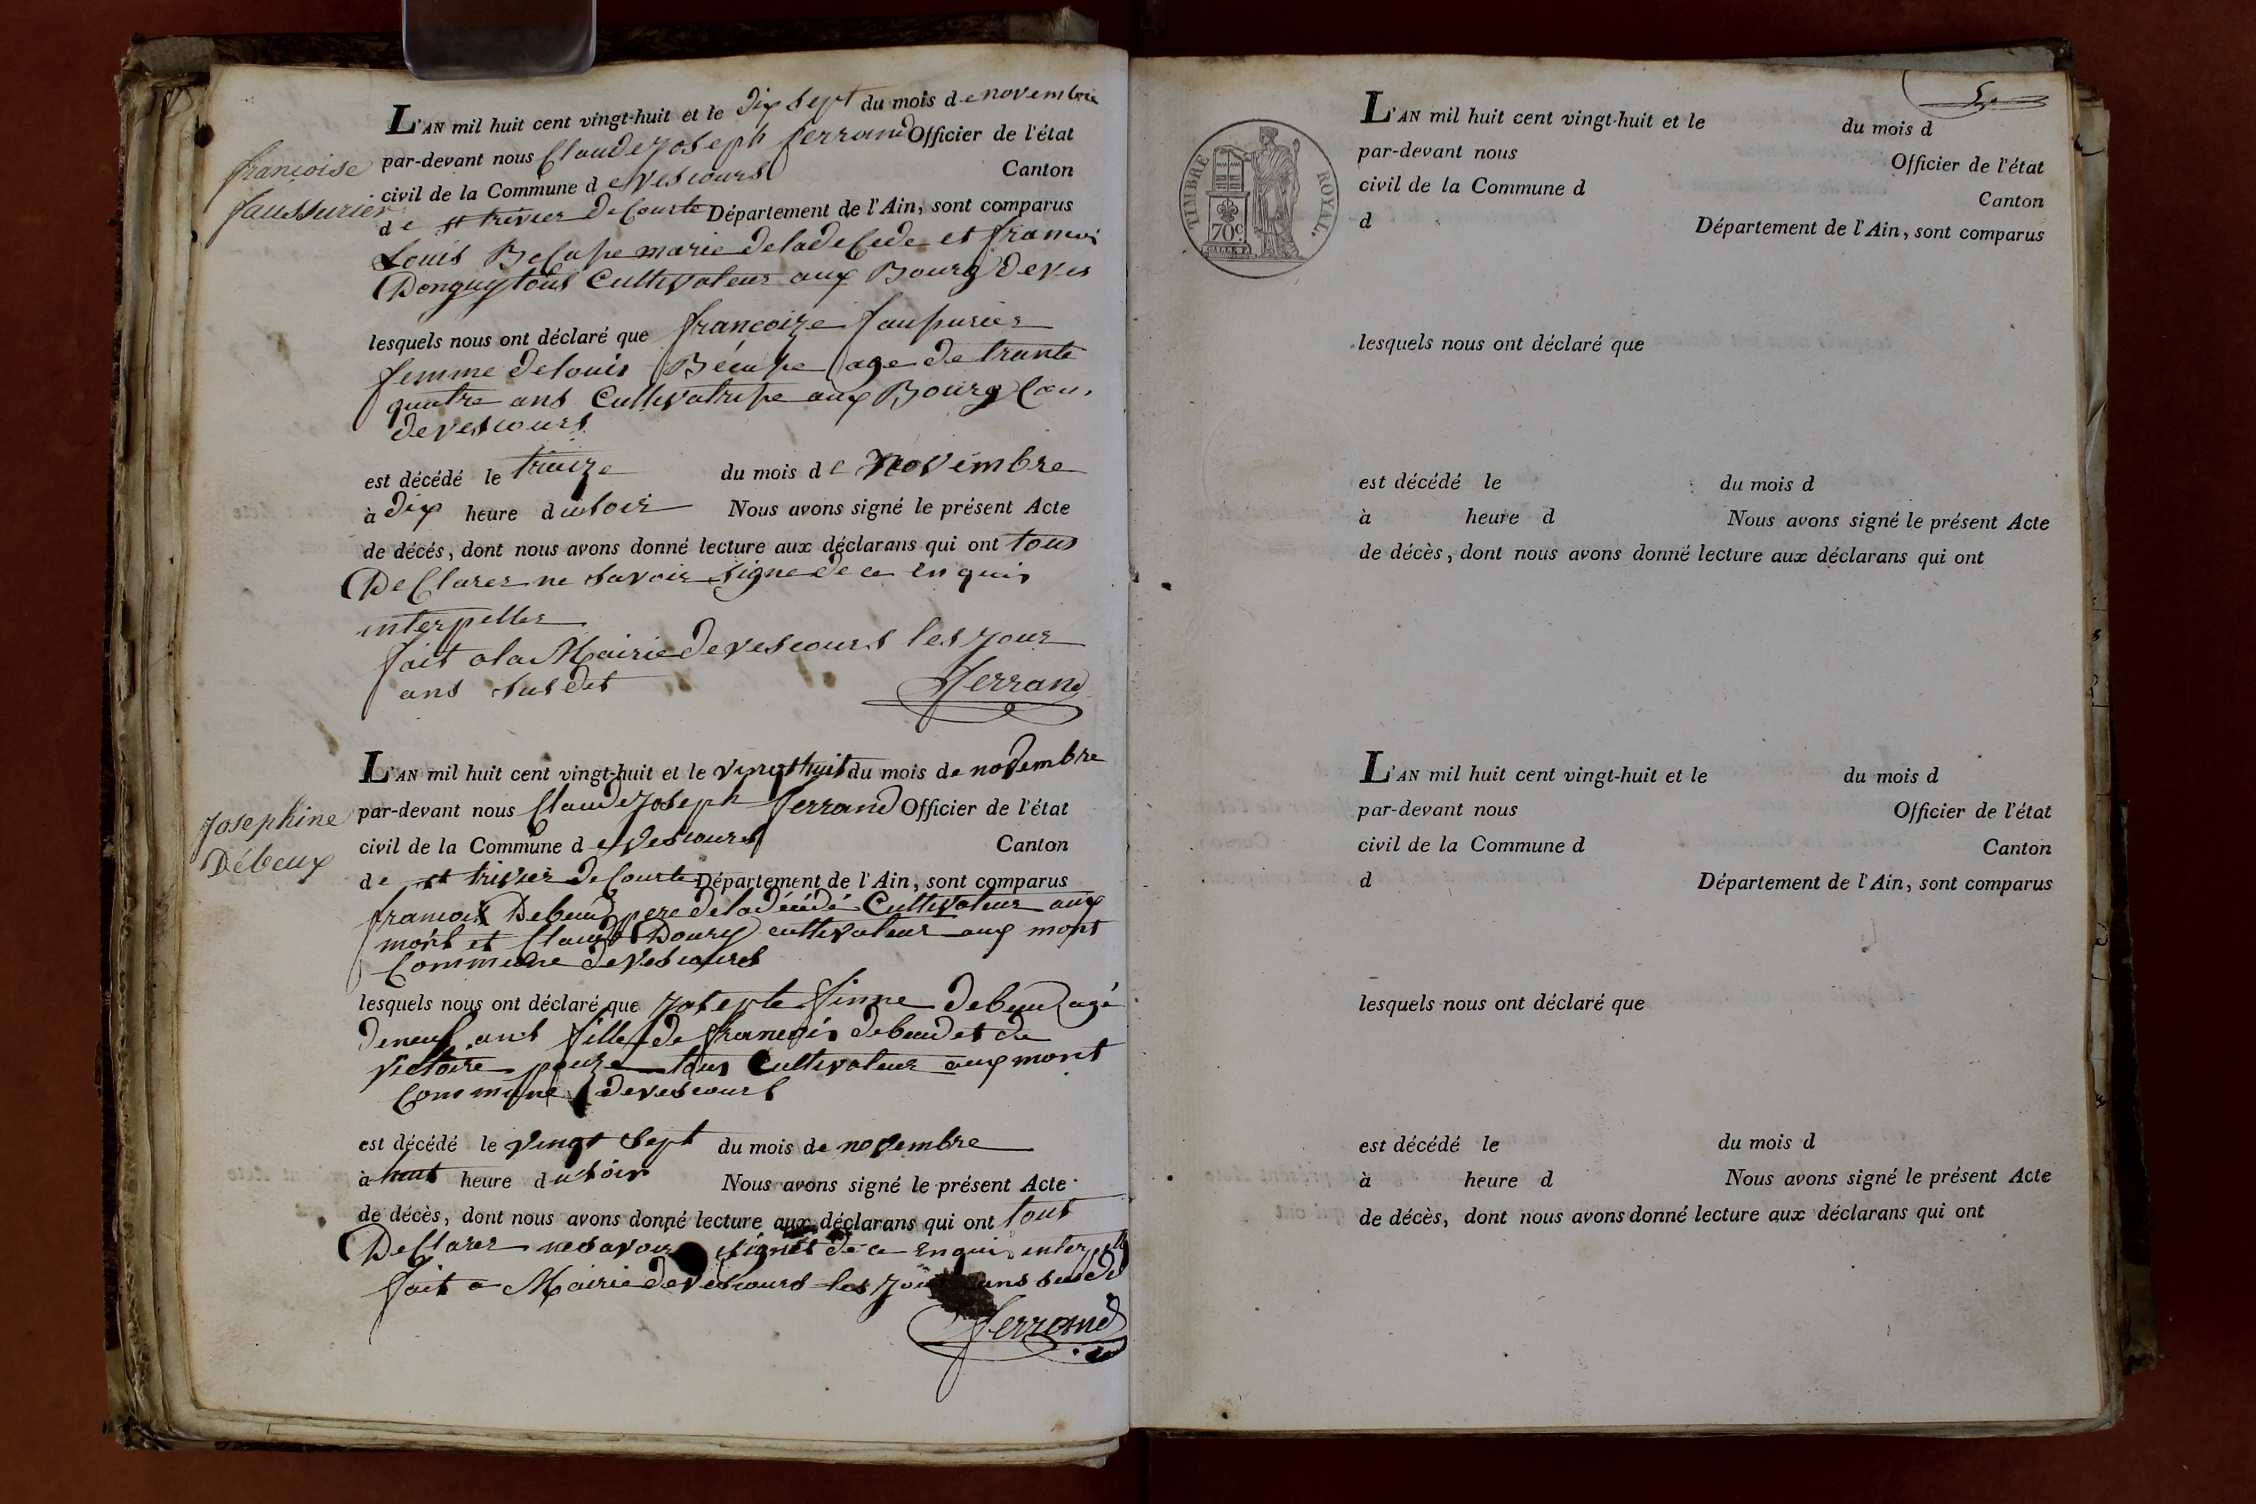 françoise
faussurier
L'AN mil huit cent vingt-huit et le dix sept du mois de novembre
par-devant nous Claude Joseph ferrand Officier de l'état
civil de la Commune de vescours Canton
de st trivier de Courte Département de l'Ain, sont comparus
Louis marie de la et francois
Donguy tous Cultivateur aux Bourg de ves
lesquels nous ont déclaré que françoize
femme de louis age de trante
quatre ans aux Bourg Com.
de vescours
est décédé le du mois de Novembre
à dix heure du soir Nous avons signé le présent Acte
de décés, dont nous avons donné lecture aux déclarans qui ont tous
De Clarer ne savoir signe de ce En quis
interpeller
fait a la Mairie de vescours les jour
ans susdit
ferrand
Josephine
Débeux
L'AN mil huit cent vingt-huit et le vingt huit du mois de novembre
par-devant nous Claude Joseph ferrand Officier de l'état
civil de la Commune de vescours Canton
de st trivier de Courte Département de l'Ain, sont comparus
francois pere de la décédé Cultivateur aux
mont et Claude Doury cultivateur aux mont
Commune de vescours
lesquels nous ont déclaré que agé
de neuf ans fille de francois et de
victoire tous Cultivateur aux mont
Commune de vescours
est décédé le vingt sept du mois de novembre
à huit heure du soir Nous avons signé le présent Acte
de décès, dont nous avons donné lecture aux déclarans qui ont tout
De Clarer ne savoir signer de ce En quis
fait a Mairie de vescours les jour ans susdit
ferrand
5
TIMBRE ROYAL.
70c
L'AN mil huit cent vingt-huit et le du mois d
par-devant nous Officier de l'état
civil de la Commune d Canton
d Département de l'Ain, sont comparus
lesquels nous ont déclaré que
est décédé le du mois d
à heure d Nous avons signé le présent Acte
de décès, dont nous avons donné lecture aux déclarans qui ont
L'AN mil huit cent vingt-huit et le du mois d
par-devant nous Officier de l'état
civil de la Commune d Canton
d Département de l'Ain, sont comparus
lesquels nous ont déclaré que
est décédé le du mois d
à heure d Nous avons signé le présent Acte
de décès, dont nous avons donné lecture aux déclarans qui ont